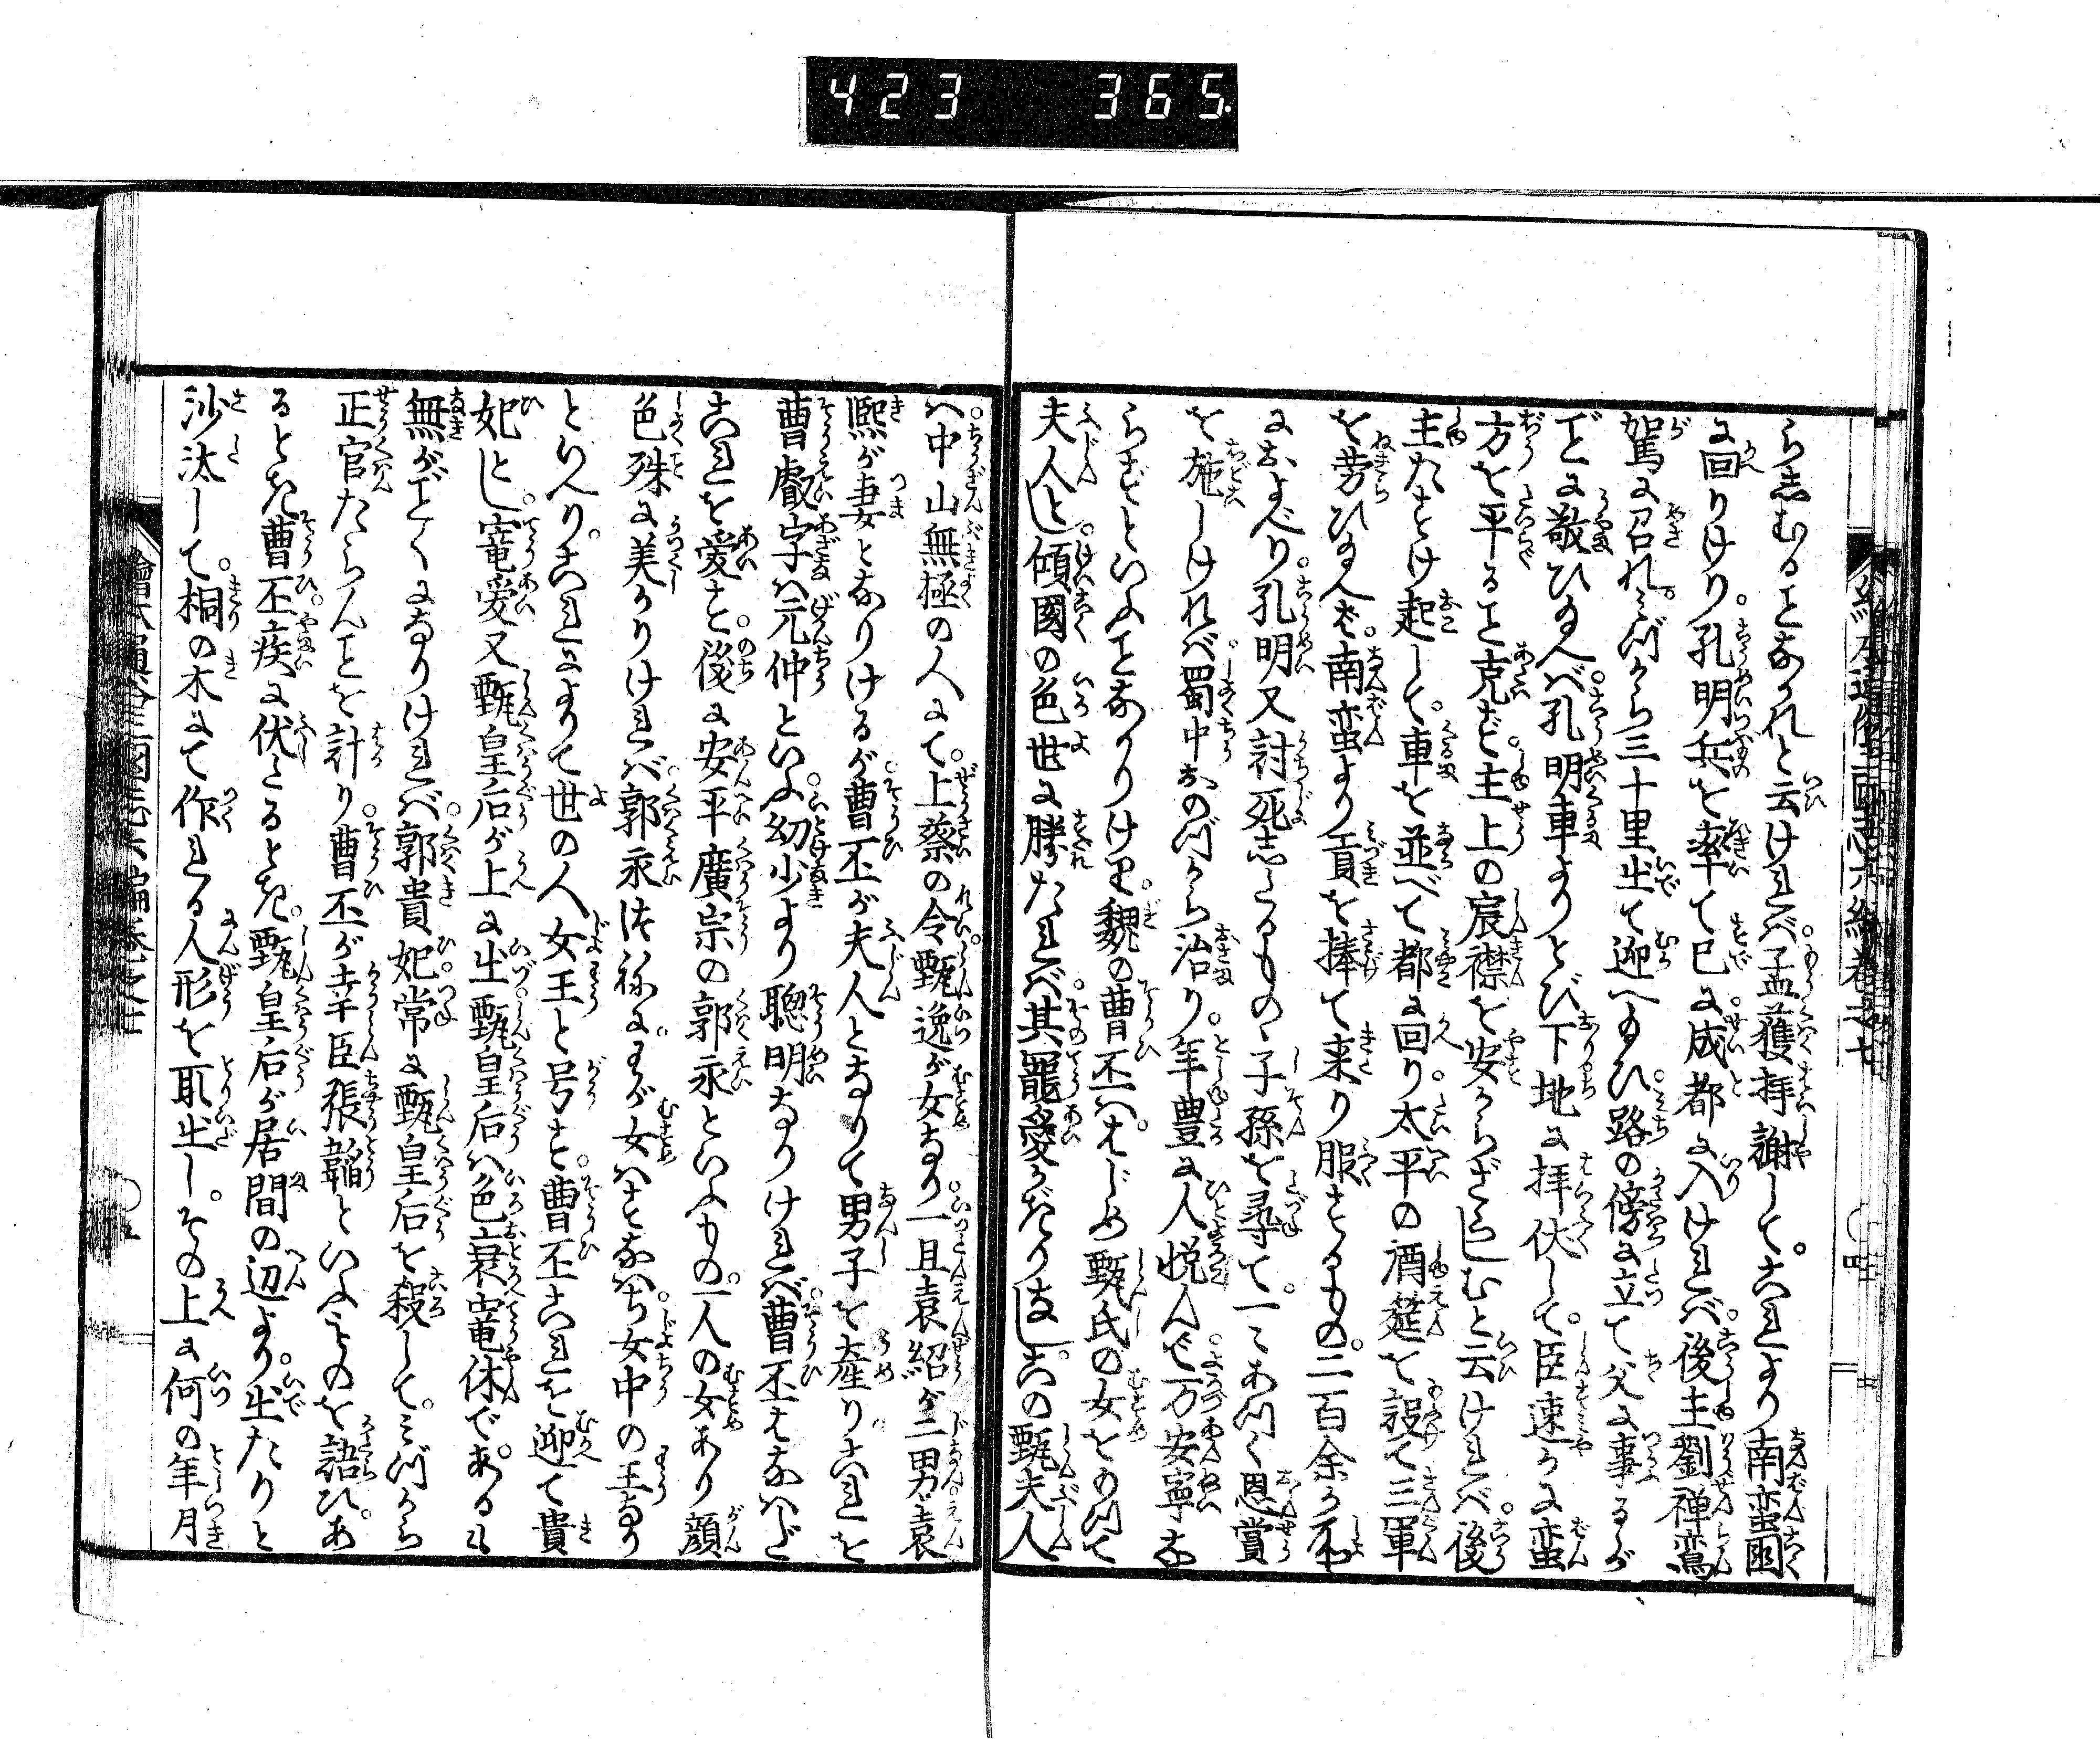 423 365
らしむることなかれと云けれバ。孟獲拝謝して。これより南蛮国
に回りけり。孔明兵を率て已に成都に入けれバ。後主劉禅鸞
駕に召れ。ミづから三十里出て迎へ給ひ路の傍に立て父に事るが
ごとに敬ひ給へバ。孔明車よりとび下地に拝伏して。臣速かに蛮
方を平ること克ず。主上の宸襟を安からざらしむと云けれバ。後
主たすけ起して。車を並べて都に回り。太平の酒莚を設て三軍
を労ひ給へば。南蛮より貢を捧て来り服するもの。二百余ケ所
におよべり。孔明又討死したるものゝ子孫を尋て。一々あつく恩賞
を施しけれバ。蜀中おのづから治り。年豊に人悦んで。万安寧な
らずといふことなかりけり。魏の曹丕ハ。はじめ甄氏の女をめつて
夫人とし。傾国の色世に勝たれバ。其寵愛かぎりなし。この甄夫人
ハ。中山無極の人にて。上蔡の令甄逸が女なり。一旦袁紹が二男袁
熙が妻となりけるが。曹丕が夫人となりて男子を産り。これを
曹叡字ハ元仲といふ。幼少より聡明なりけれバ。曹丕はなハだ
これを愛す。後に安平廣宗の郭永といふもの。一人の女あり顔
色殊に美かりけれバ。郭永つねに。わが女ハすなハち女中の王なり
といへり。これによりて世の人女王と号す。曹丕これを迎て貴
妃とし。寵愛又甄皇后が上に出づ。甄皇后ハ色衰寵休で。あるも
無がごとくになりけれバ。郭貴妃常に甄皇后を殺して。ミづから
正官たらんことを計り。曹丕が幸臣張韜といふものを語ひ。あ
るとき曹丕。疾に伏たるとき。甄皇后が居間の辺より。出たりと
沙汰して。桐の木にて作れる人形を取出し。その上に何の年月